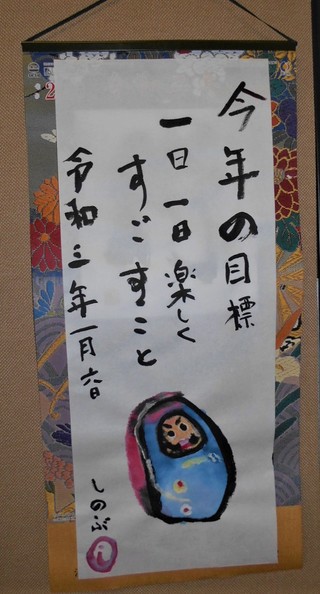 今年の目標
一日一日楽しく
すごすこと
令和三年一月六日
しのぶ
し